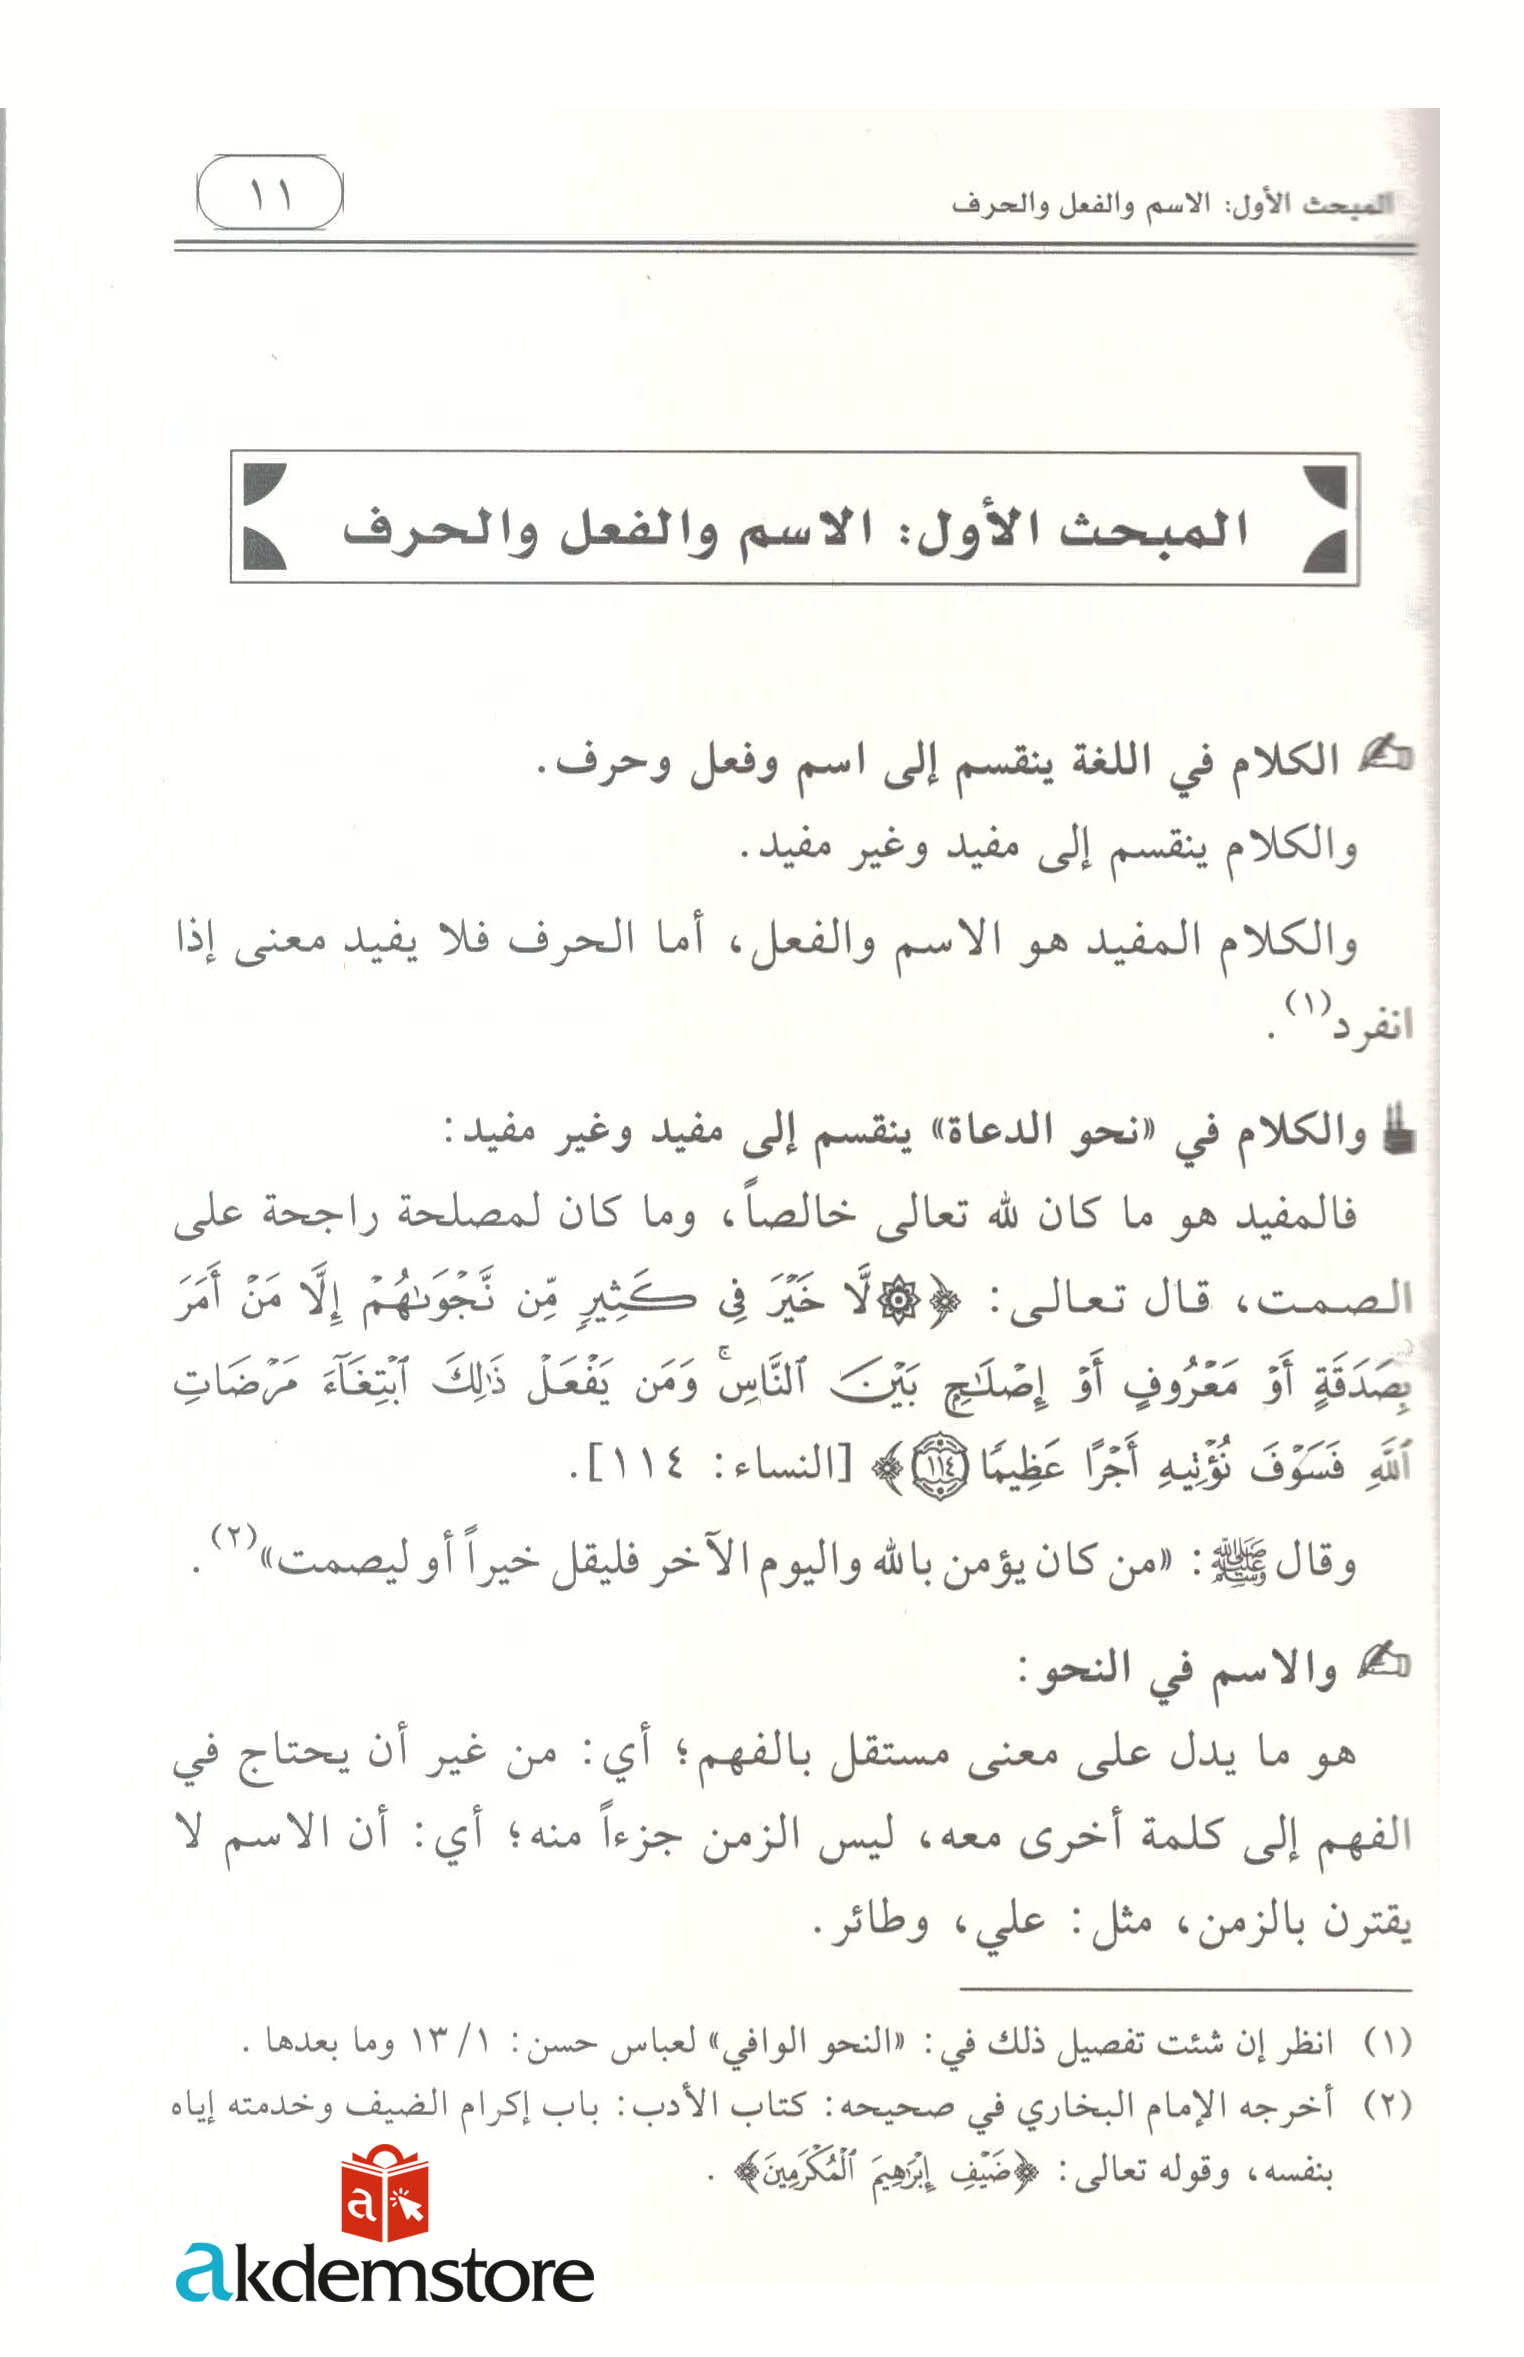 المبحث الأول: الاسم والفعل والحرف
١١
المبحث الأول: الاسم والفعل والحرف
الكلام في اللغة ينقسم إلى اسم وفعل وحرف.
والكلام ينقسم إلى مفيد وغير مفيد.
والكلام المفيد هو الاسم والفعل، أما الحرف فلا يفيد معنى إذا
انفرد(١).
والكلام في «نحو الدعاة» ينقسم إلى مفيد وغير مفيد:
فالمفيد هو ما كان لله تعالى خالصاً، وما كان لمصلحة راجحة على
الصمت، قال تعالى: ﴿۞ لَّا خَيْرَ فِى كَثِيرٍ مِّن نَّجْوَىٰهُمْ إِلَّا مَنْ أَمَرَ
بِصَدَقَةٍ أَوْ مَعْرُوفٍ أَوْ إِصْلَٰحٍ بَيْنَ ٱلنَّاسِۚ وَمَن يَفْعَلْ ذَٰلِكَ ٱبْتِغَآءَ مَرْضَاتِ
ٱللَّهِ فَسَوْفَ نُؤْتِيهِ أَجْرًا عَظِيمًا ١١٤﴾ [النساء: ١١٤].
وقال ﷺ: «من كان يؤمن بالله واليوم الآخر فليقل خيراً أو ليصمت»(٢).
والاسم في النحو:
هو ما يدل على معنى مستقل بالفهم؛ أي: من غير أن يحتاج في
الفهم إلى كلمة أخرى معه، ليس الزمن جزءاً منه؛ أي: أن الاسم لا
يقترن بالزمن، مثل: علي، وطائر.
(١) انظر إن شئت تفصيل ذلك في: «النحو الوافي» لعباس حسن: ١٣/١ وما بعدها.
(٢) أخرجه الإمام البخاري في صحيحه: كتاب الأدب: باب إكرام الضيف وخدمته إياه
بنفسه، وقوله تعالى: ﴿ضَيْفِ إِبْرَٰهِيمَ ٱلْمُكْرَمِينَ﴾.
a
akdemstore